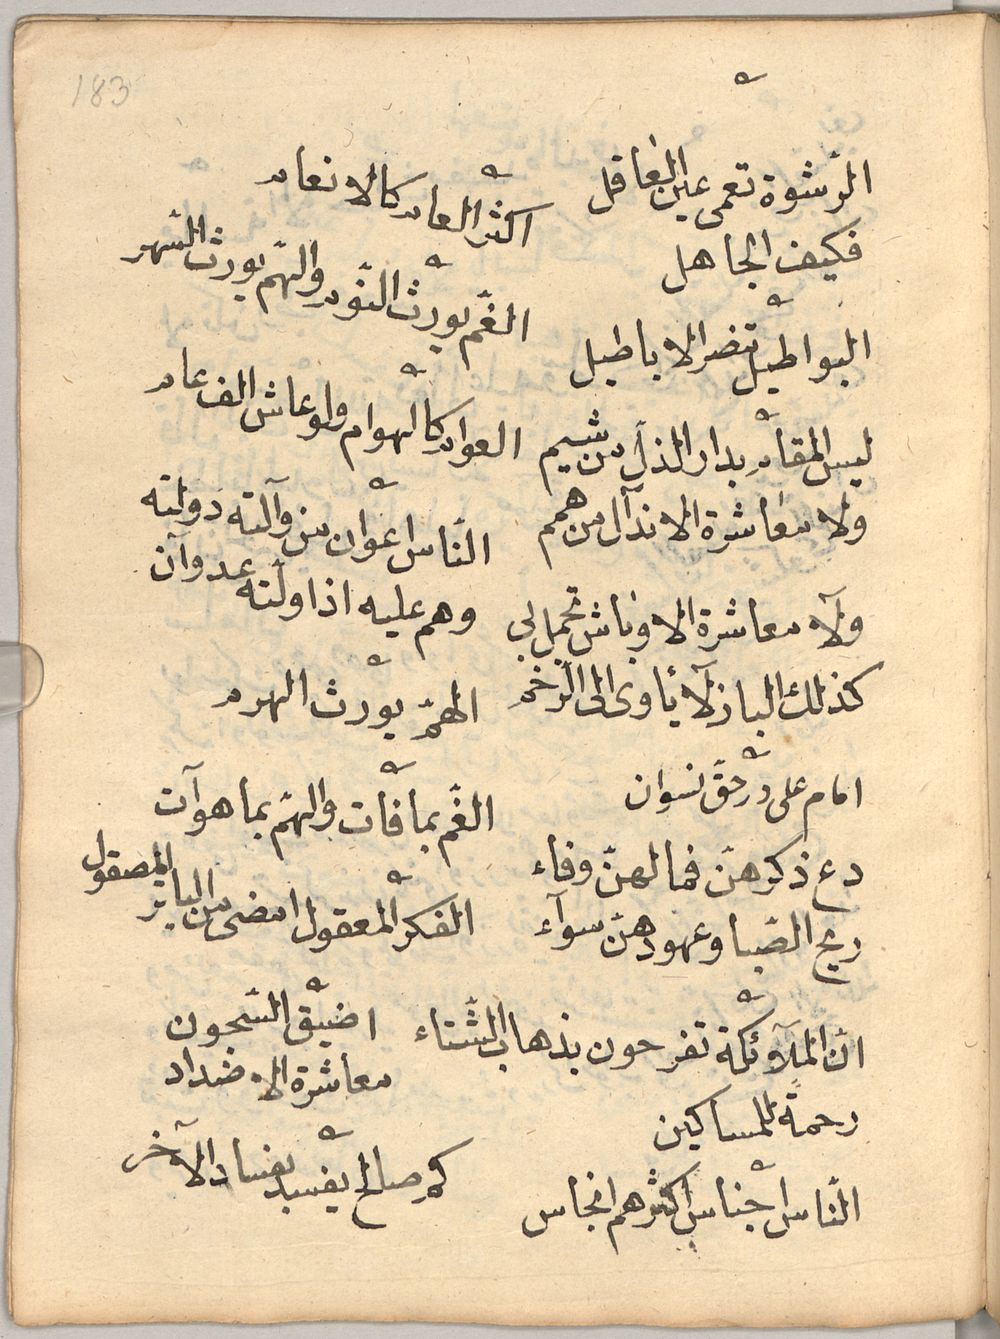 183
الرّشوة تعمى عين العاقل
فكيف الجاهل
البواطيل تنصر الاباطيل
ليس المقام بدار الذلّ من شيم
ولا معاشرة الانذال من همم
ولا معاشرة الاوباش تجمل بى
كذلك الباز لا يأوى الى الرّخم
امام على در حقّ نسوان
دع ذكرهنّ فما لهنّ وفاء
ريح الصّبا وعهودهنّ سوآء
انّ الملآئكة تفرحون بذهاب الشّتاء
رحمةً للمساكين
النّاس اجناس اكثرهم انجاس
اكثر العام كالانعام
الغّم يورث النّوم والهّم يورث السّهر
العوام كالهوام ولو عاش الف عام
النّاس اعوان من وآلته دولته
وهم عليه اذا ولّته عدوآن
الهّم يورث الهرم
الغّم بما فات والهّم بما هو آت
الفكر المعقول امضى من الباتر المصقول
اضيق السّجون
معاشرة الاضداد
كم صالح يفسد بفساد الآخر